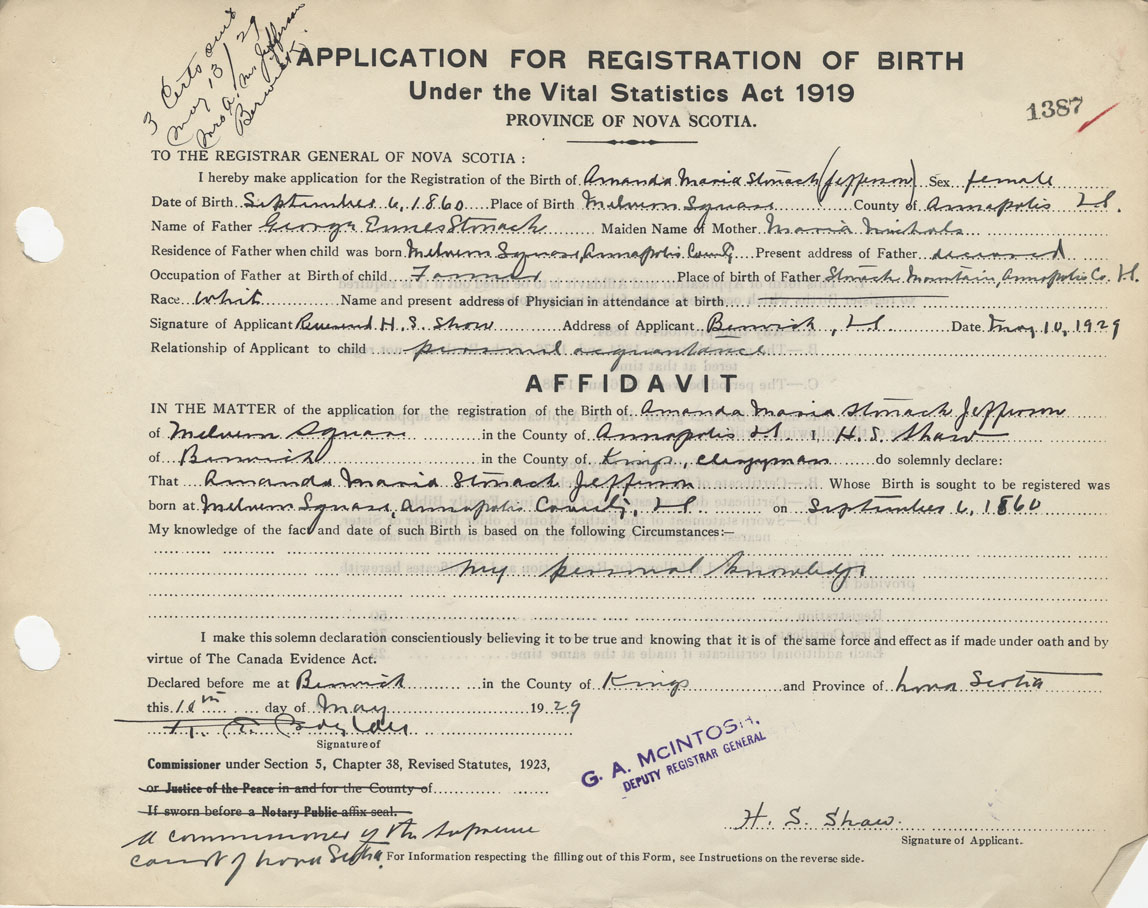 3 Certs out
May 13/29
Mrs A. M. Jefferson
Berwick
APPLICATION FOR REGISTRATION OF BIRTH
Under the Vital Statistics Act 1919
PROVINCE OF NOVA SCOTIA.
1387
TO THE REGISTRAR GENERAL OF NOVA SCOTIA :
I hereby make application for the Registration of the Birth of Amanda Maria Stonach (Jefferson) Sex female
Date of Birth September 6, 1860 Place of Birth Melvern Square County of Annapolis
Name of Father George Ennes Stonach Maiden Name of Mother Maria Nichols
Residence of Father when child was born Melvern Square, Annapolis County Present address of Father deceased
Occupation of Father at Birth of child Farmer Place of birth of Father Stonach Mountain, Annapolis Co.
Race White Name and present address of Physician in attendance at birth
Signature of Applicant Reverend H. S. Shaw Address of Applicant Berwick, Date May 10, 1929
Relationship of Applicant to child personal acquantance
AFFIDAVIT
IN THE MATTER of the application for the registration of the Birth of Amanda Maria Stonach Jefferson
of Melvern Square in the County of Annapolis I, H. S. Shaw
of Berwick in the County of Kings, clergyman do solemnly declare:
That Amanda Maria Stonach Jefferson Whose Birth is sought to be registered was
born at Melvern Square, Annapolis County, on September 6, 1860
My knowledge of the fact and date of such Birth is based on the following Circumstances:—
My personal knowledge
I make this solemn declaration conscientiously believing it to be true and knowing that it is of the same force and effect as if made under oath and by
virtue of The Canada Evidence Act.
Declared before me at Berwick in the County of Kings and Province of Nova Scotia
this 10th day of May 1929
Signature of
Commissioner under Section 5, Chapter 38, Revised Statutes, 1923,
or Justice of the Peace in and for the County of
If sworn before a Notary Public affix seal.
A commissioner of the Supreme
Court of Nova Scotia.
G. A. McINTOSH,
DEPUTY REGISTRAR GENERAL
H. S. Shaw.
Signature of Applicant.
For Information respecting the filling out of this Form, see Instructions on the reverse side.